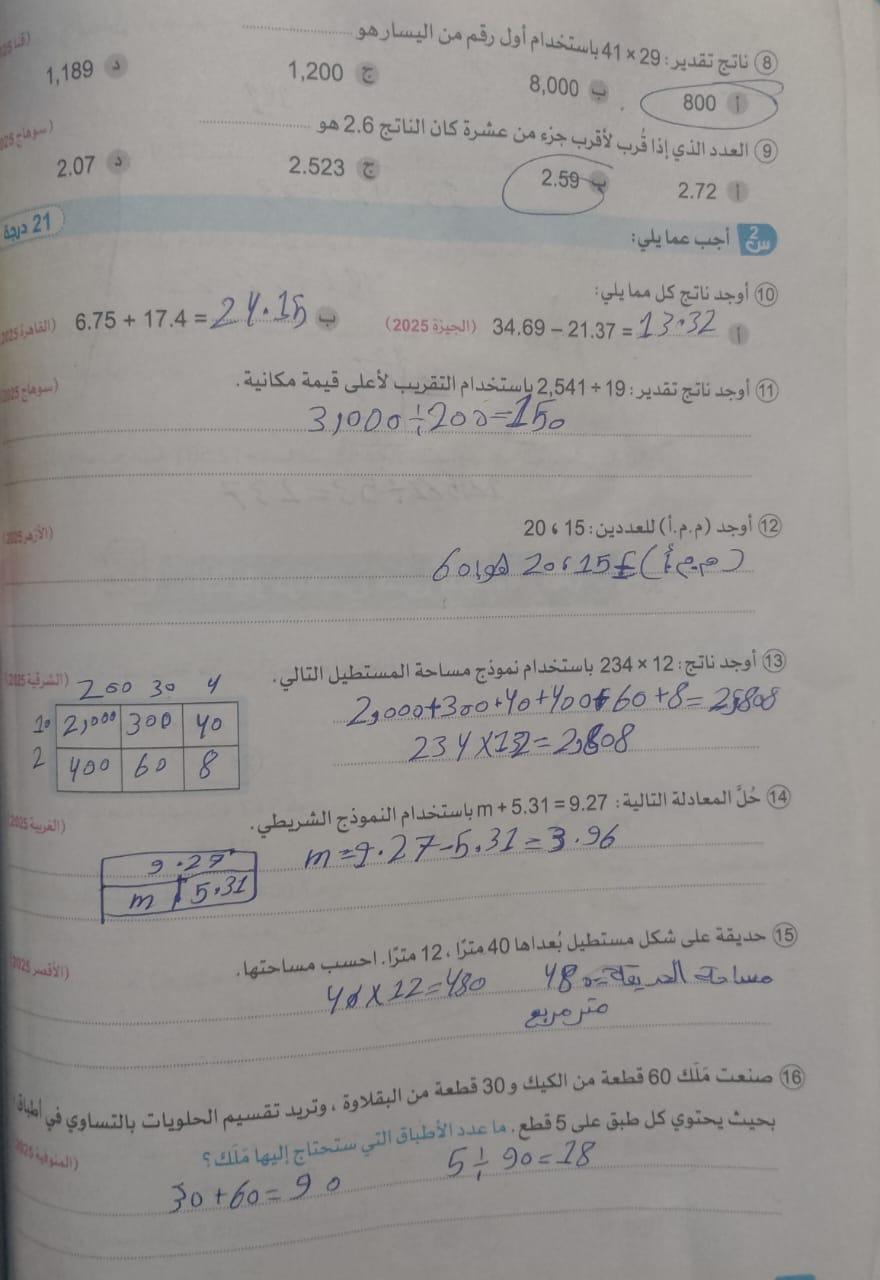 8 ناتج تقدير: 29 × 41 باستخدام أول رقم من اليسار هو
أ 800 ب 8,000 ج 1,200 د 1,189
9 العدد الذي إذا قُرب لأقرب جزء من عشرة كان الناتج 2.6 هو (سوهاج 2025
أ 2.72 ب 2.59 ج 2.523 د 2.07
س2 أجب عما يلي: 21 درجة
10 أوجد ناتج كل مما يلي:
أ 34.69 – 21.37 = 13.32 (الجيزة 2025) ب 6.75 + 17.4 = 24.15 (القاهرة 2025
11 أوجد ناتج تقدير: 19 ÷ 2,541 باستخدام التقريب لأعلى قيمة مكانية. (سوهاج 2025
3,000÷200=150
12 أوجد (م.م.أ) للعددين: 15 ، 20 (الأزهر 2025)
(م.م.أ) 15 ، 20 هو 60
13 أوجد ناتج: 12 × 234 باستخدام نموذج مساحة المستطيل التالي. (الشرقية 2025)
200 30 4
10 2,000 300 40
2 400 60 8
2,000+300+40+400+60+8=2,808
234×12=2,808
14 حُلَّ المعادلة التالية: m + 5.31 = 9.27 باستخدام النموذج الشريطي. (الغربية 2025)
m=9.27-5.31=3.96
9.27
m 5.31
15 حديقة على شكل مستطيل بُعداها 40 مترًا، 12 مترًا. احسب مساحتها. (الأقصر 2025)
مساحة الحديقة=480
40×12=480
متر مربع
16 صنعت مَلَك 60 قطعة من الكيك و 30 قطعة من البقلاوة، وتريد تقسيم الحلويات بالتساوي في أطباق
بحيث يحتوي كل طبق على 5 قطع. ما عدد الأطباق التي ستحتاج إليها مَلَك؟ (المنوفية 2025
5÷90=18
30+60=90